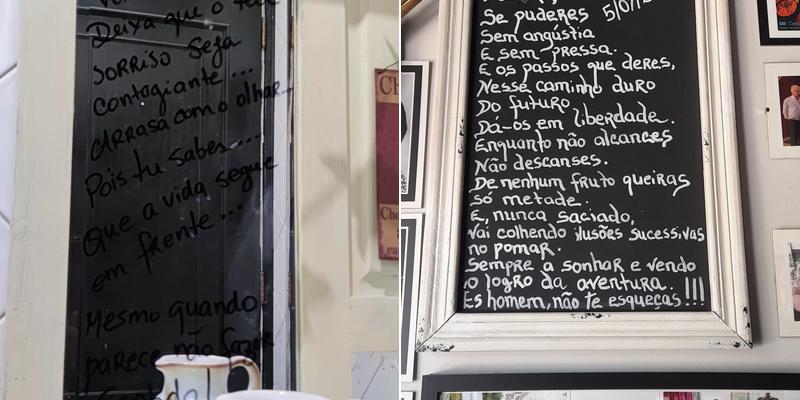 Deixa que o teu
sorriso seja
contagiante...
Arrasa com o olhar...
Pois tu sabes....
Que a vida segue
em frente...
Mesmo quando
parece não fazer
CH
Se puderes 5/07/13
Sem angústia
E sem pressa.
E os passos que deres,
Nesse caminho duro
Do futuro
Dá-os em liberdade.
Enquanto não alcances
Não descanses.
De nenhum fruto queiras
só metade.
E, nunca saciado,
Vai colhendo ilusões sucessivas
no pomar.
Sempre a sonhar e vendo
o logro da aventura.
És homem, não te esqueças!!!